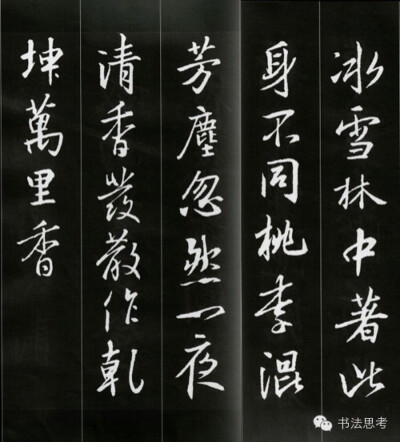 冰雪林中著此
身不同桃李混
芳塵忽然一夜
清香發散作乾
坤萬里香
书法思考